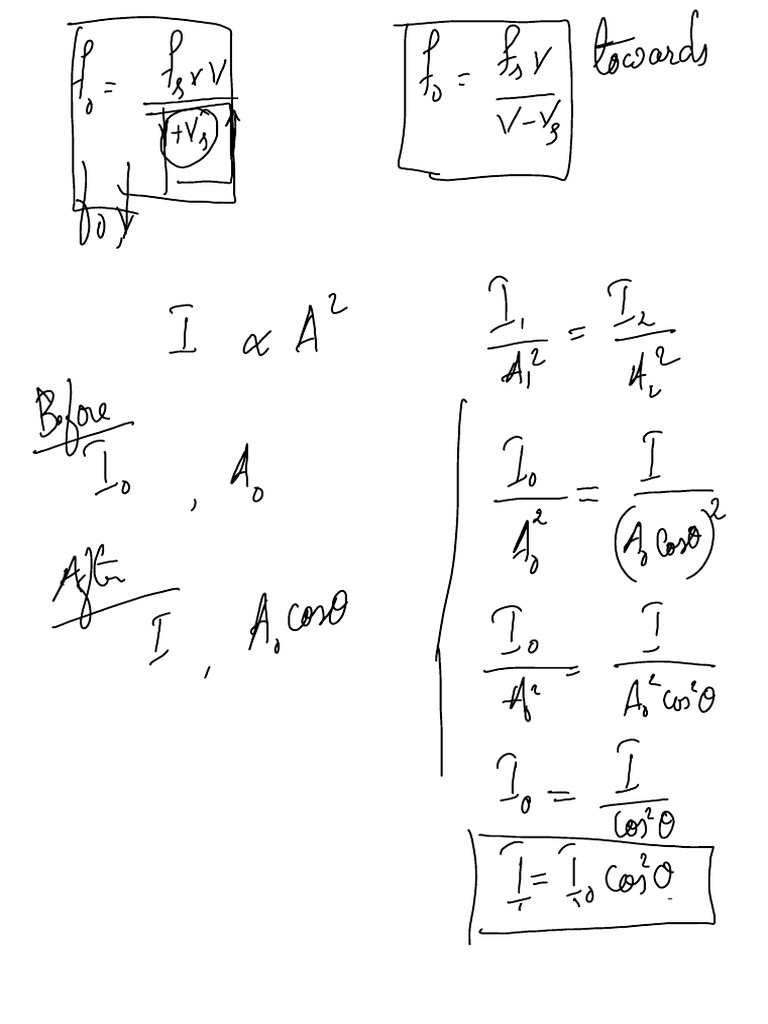 f₀ = fₛ × V / V + Vₛ
f₀ ↓
f₀ = fₛ V / V − Vₛ towards
I ∝ A²
Before
I₀ , A₀
After
I , A₀ cosθ
I₁ / A₁² = I₂ / A₂²
I₀ / A₀² = I / (A₀ cosθ)²
I₀ / A₀² = I / A₀² cos²θ
I₀ = I / cos²θ
I = I₀ cos²θ